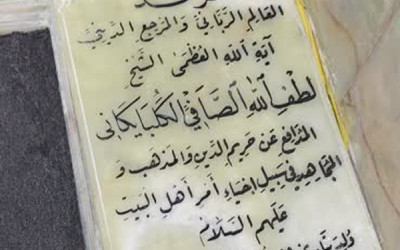 العالم الرباني والمرجع الديني
آية الله العظمى الشيخ
لطف الله الصافي الگلپايگاني
المدافع عن حريم الدين والمذهب و
المجاهد في سبيل احياء أمر أهل البيت
عليهم السلام